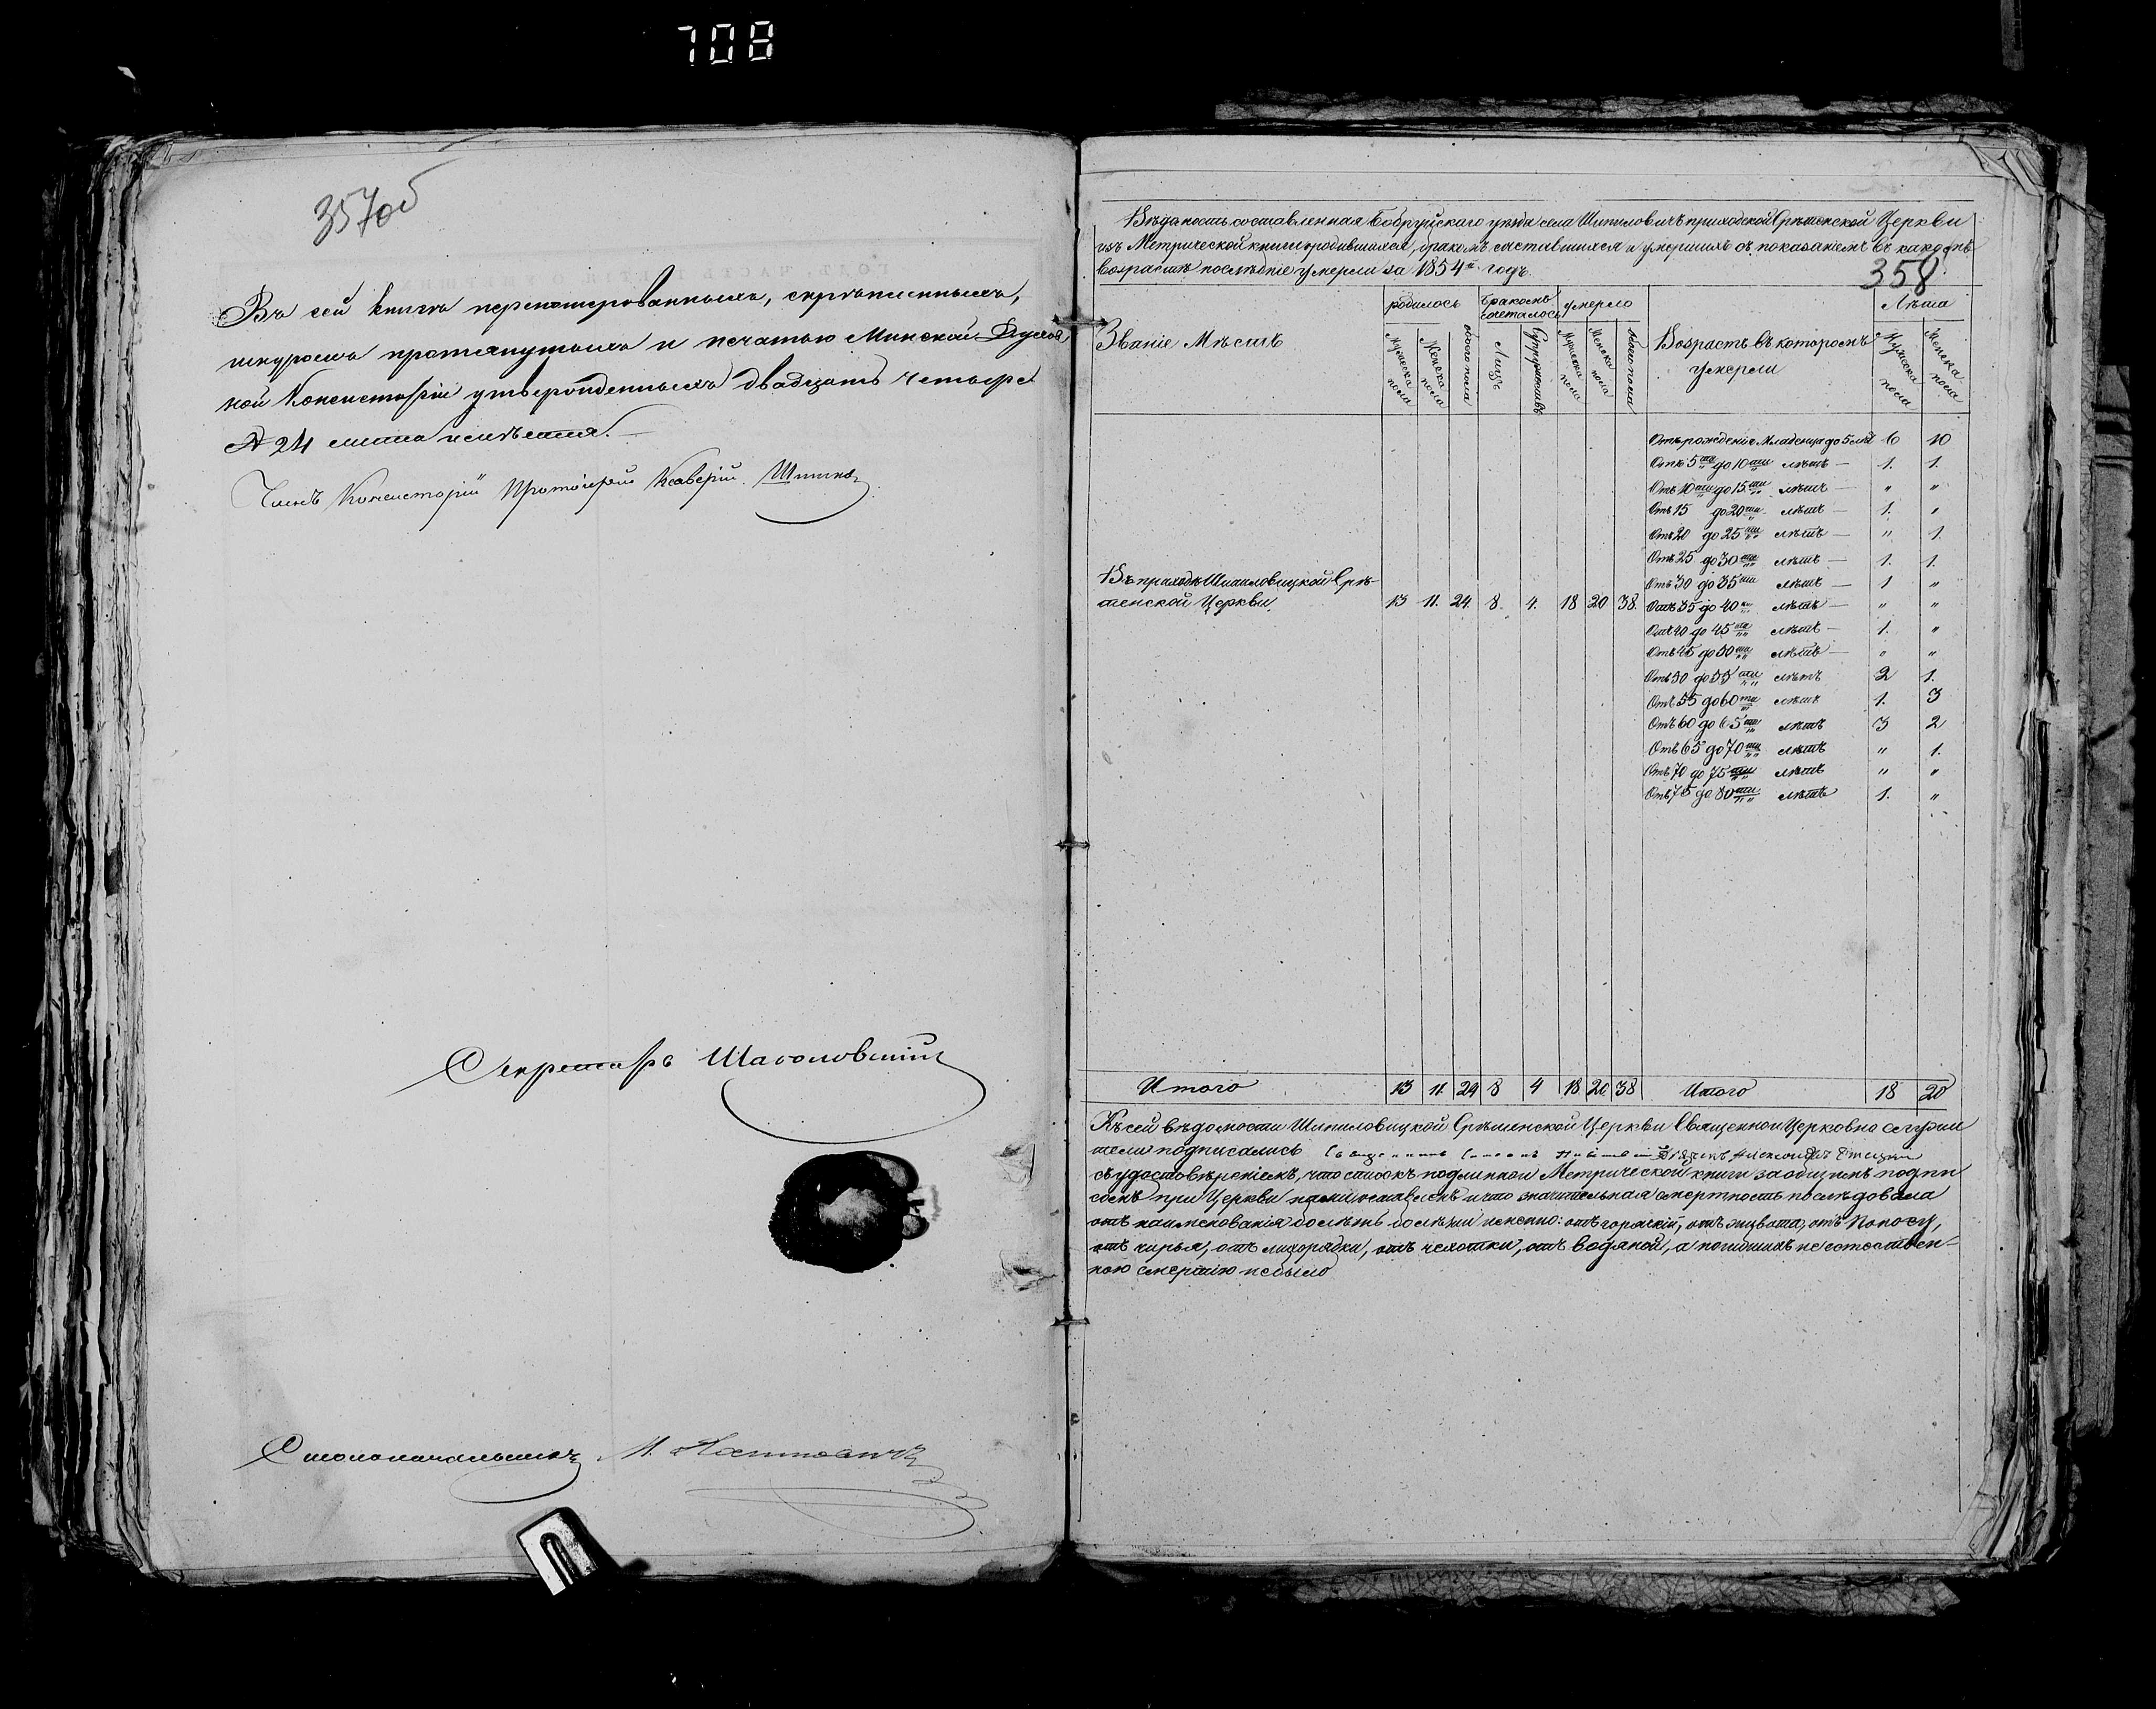 708
357об
Въ сей книгѣ перенумерованныхъ, скрѣпленныхъ,
шнуромъ протянутыхъ и печатью Минской Духов
ной Консисторіи утвержденныхъ двадцать четыре
№ 24 листа имѣется.
Членъ Консисторіи Протоіерей Ксаверій
Секретарь
Столоначальникъ М.
358
Вѣдомость составленная Бобруйскаго уѣзда села Шипиловичъ приходской Срѣтенской Церкви
изъ Метрической книги о родившихся, бракомъ сочетавшихся и умершихъ съ показаніемъ въ какомъ
возрастѣ послѣдніе умерли за 1854й годъ.
Званіе Мѣстъ
родилось
Мужеска пола
Женска пола
обоего пола
Бракомъ сочеталось
Лицъ
Супружествъ
умерло
Мужеска пола
Женска пола
обоего пола
Возрастъ въ которомъ
умерли
Лѣта
Мужеска пола
Женска пола
Отъ рожденія Младенца до 5 лѣт 6 10
Отъ 5ти до 10ти лѣтъ — 1. 1.
Отъ 10ти до 15ти лѣтъ — " "
Отъ 15 до 20ти лѣтъ — 1. "
Отъ 20 до 25ти лѣтъ — " 1.
Отъ 25 до 30ти лѣтъ — 1. 1.
Отъ 30 до 35ти лѣтъ — 1 "
Въ приходѣ Шипиловицкой Срѣ-
тенской Церкви. 13 11. 24. 8. 4. 18 20 38. Отъ 35 до 40ти лѣтъ — " "
Отъ 40 до 45ти лѣтъ — 1. "
Отъ 45 до 50ти лѣтъ — " "
Отъ 50 до 55ти лѣтъ 2 1.
Отъ 55 до 60ти лѣтъ 1. 3
Отъ 60 до 65ти лѣтъ 3 2
Отъ 65 до 70ти лѣтъ " 1.
Отъ 70 до 75ти лѣтъ " "
Отъ 75 до 80ти лѣтъ 1. "
Итого 13 11. 24 8 4 18 20. 38 Итого 18 20
Къ сей вѣдомости Шипиловицкой Срѣтенской Церкви Священноцерковно служи
тели подписались
съ удостовѣреніемъ, что списокъ подлинной Метрической книги за общимъ подпи
сомъ при Церкви нами оставленъ и что значительная смертность послѣдовала
отъ наименованія болѣзни именно: отъ горячкій, отъ живота, отъ поносу,
отъ кирья, отъ лихорадки, отъ чехотки, отъ водяной, а погибшихъ не естествен-
ною смертію небыло